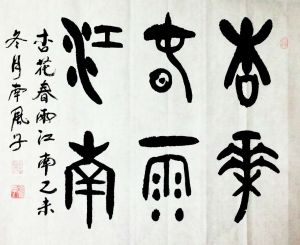 杏花
春雨
江南
杏花春雨江南乙未
冬月南风子